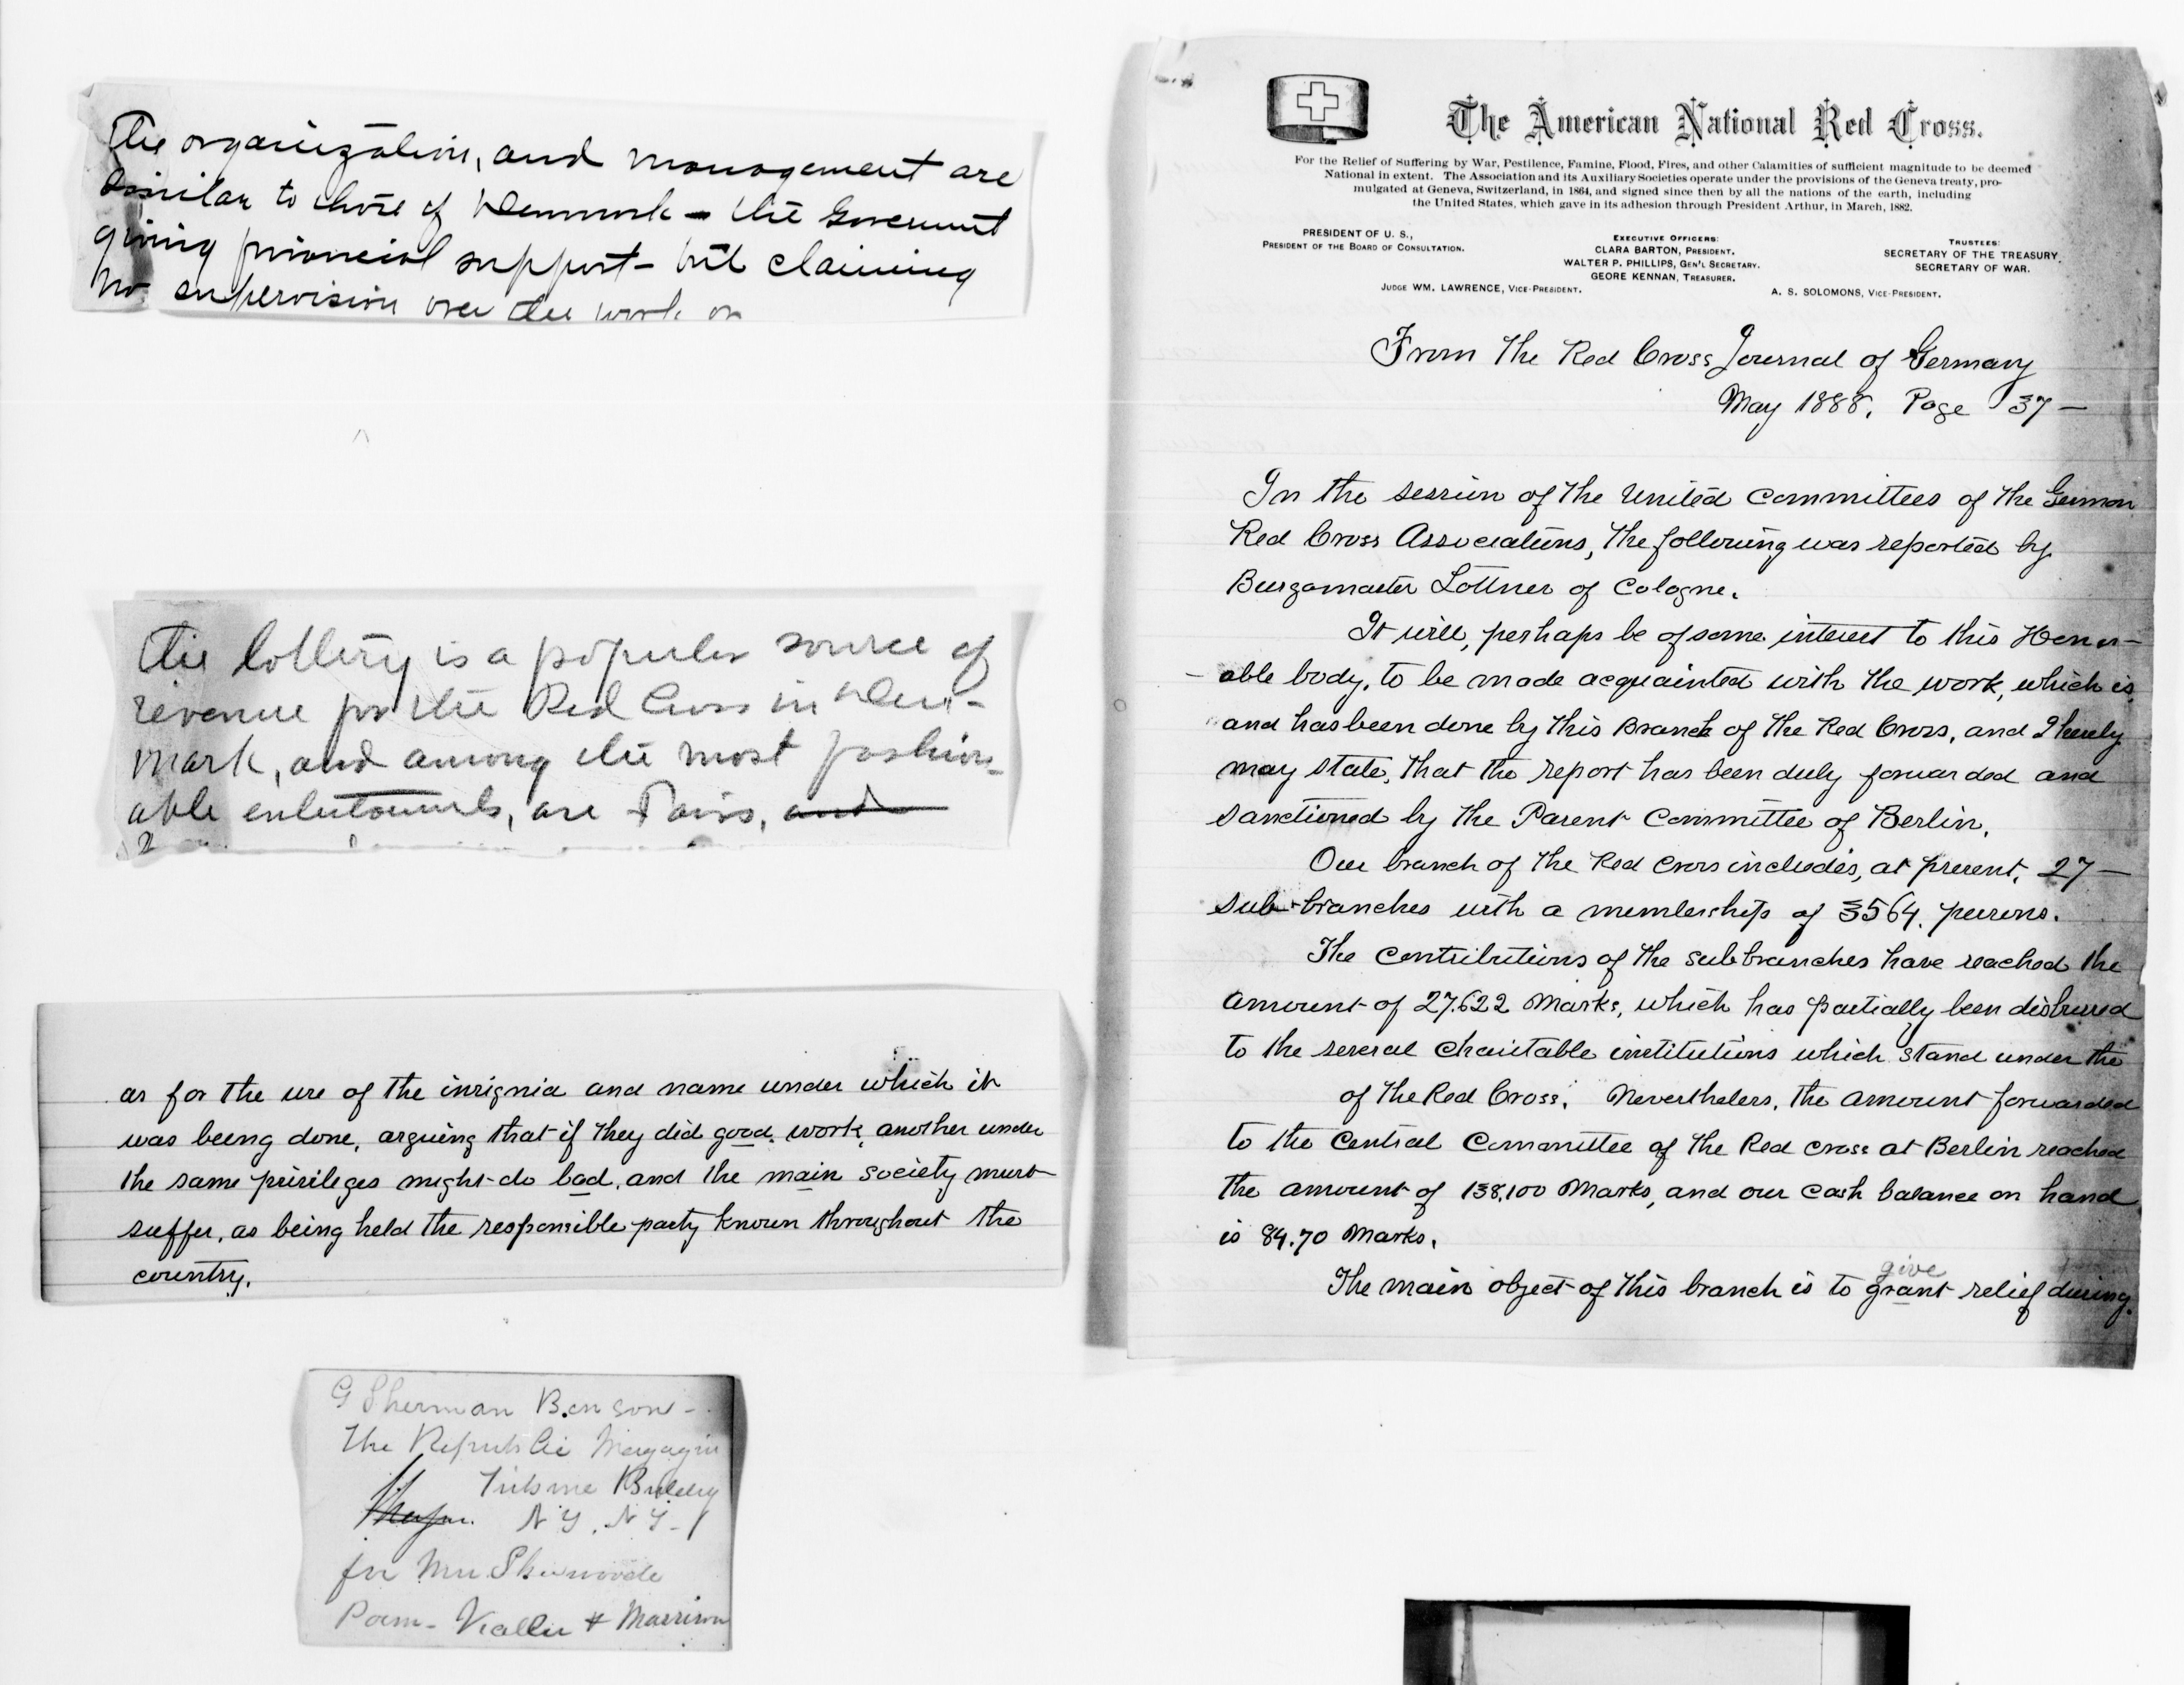 The organization, and management are
similar to those of Denmark - the Government
giving financial support - but claiming
no supervision over the work or
The lottery is a popular source of
revenue for the Red Cross in Den-
mark, and among the most fashion-
able entertainments, are Fairs, and
as for the use of the insignia and name under which it
was being done, arguing that if they did good work, another under
the same privileges might do bad, and the main society must
suffer, as being held the responsible party known throughout the
country.
G Sherman Benson -
The Republic Magazin
Tribune Building
N Y. N Y -
for Mrs Sherwoods
Poem -
The American National Red Cross.
For the Relief of Suffering by War, Pestilence, Famine, Flood, Fires, and other Calamities of sufficient magnitude to be deemed
National in extent. The Association and its Auxiliary Societies operate under the provisions of the Geneva treaty, pro-
mulgated at Geneva, Switzerland, in 1864, and signed since then by all the nations of the earth, including
the United States, which gave in its adhesion through President Arthur, in March, 1882.
PRESIDENT OF U. S.,
PRESIDENT OF THE BOARD OF CONSULTATION.
EXECUTIVE OFFICERS:
CLARA BARTON, PRESIDENT.
WALTER P. PHILLIPS, GEN'L SECRETARY.
GEORE KENNAN, TREASURER.
TRUSTEES:
SECRETARY OF THE TREASURY.
SECRETARY OF WAR.
JUDGE WM. LAWRENCE, VICE-PRESIDENT.
A. S. SOLOMONS, VICE-PRESIDENT.
From the Red Cross Journal of Germany
May 1888. Page 37 —
In the session of the United Committees of the German
Red Cross Associations, the following was reported by
Burgomaster Lottner of Cologne.
It will, perhaps be of some interest to this Honor-
- able body, to be made acquainted with the work, which is
and has been done by this Branch of the Red Cross, and I hereby
may state, that the report has been duly forwarded and
sanctioned by the Parent Committee of Berlin.
Our branch of the Red Cross includes, at present, 27 —
sub-branches with a membership of 3564. persons.
The contributions of the sub branches have reached the
amount of 27.622 Marks, which has partially been disbursed
to the several charitable institutions which stand under the
of the Red Cross. Nevertheless, the amount forwarded
to the Central Committee of the Red Cross at Berlin reached
the amount of 138,100 Marks, and our cash balance on hand
is 84.70 Marks.
give
The main object of this branch is to grant relief during